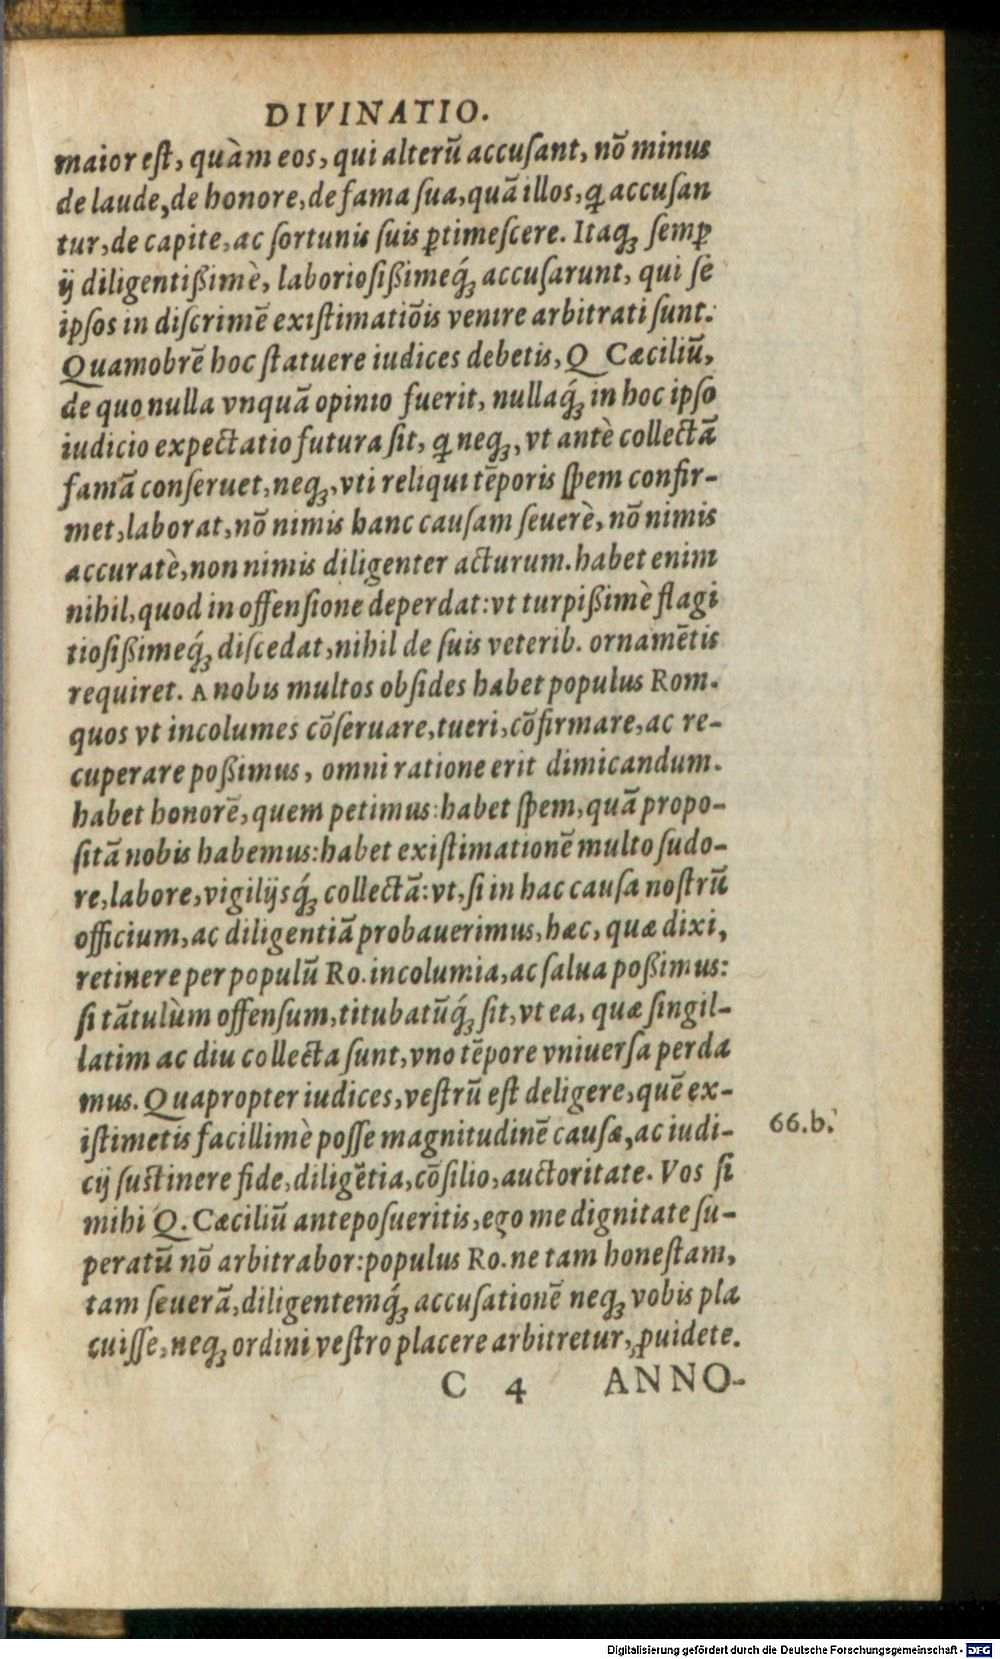 DIVINATIO.
maior est, quàm eos, qui alterũ accusant, nõ minus
de laude, de honore, de fama sua, quã illos, ꝗ accusan
tur, de capite, ac fortunis suis ꝑtimescere. Itaqꝫ semꝑ
ij diligentißimè, laboriosißimeq́ꝫ accusarunt, qui se
ipsos in discrimẽ existimatiõis venire arbitrati sunt.
Quamobrẽ hoc statuere iudices debetis, Q Cæciliũ,
de quo nulla vnquã opinio fuerit, nullaq́ꝫ in hoc ipso
iudicio expectatio futura sit, ꝗ neqꝫ, vt antè collectã
famã conseruet, neqꝫ, vti reliqui tẽporis spem confir-
met, laborat, nõ nimis hanc causam seuerè, nõ nimis
accuratè, non nimis diligenter acturum. habet enim
nihil, quod in offensione deperdat: vt turpißimè flagi
tiosißimeq́ꝫ discedat, nihil de suis veterib. ornamẽtis
requiret. A nobis multos obsides habet populus Rom.
quos vt incolumes cõseruare, tueri, cõfirmare, ac re-
cuperare poßimus, omni ratione erit dimicandum.
habet honorẽ, quem petimus: habet spem, quã propo-
sitã nobis habemus: habet existimationẽ multo sudo-
re, labore, vigilijsq́ꝫ collectã: vt, si in hac causa nostrũ
officium, ac diligentiã probauerimus, hæc, quæ dixi,
retinere per populũ Ro. incolumia, ac salua poßimus:
si tãtulùm offensum, titubatũq́ꝫ sit, vt ea, quæ singil-
latim ac diu collecta sunt, vno tẽpore vniuersa perda
mus. Quapropter iudices, vestrũ est deligere, quẽ ex-
istimetis facillimè posse magnitudinẽ causæ, ac iudi-
cij sustinere fide, diligẽtia, cõsilio, auctoritate. Vos si
66.b.
mihi Q. Cæciliũ anteposueritis, ego me dignitate su-
peratũ nõ arbitrabor: populus Ro. ne tam honestam,
tam seuerã, diligentemq́ꝫ accusationẽ neqꝫ vobis pla
cuisse, neqꝫ ordini vestro placere arbitretur, ꝓuidete.
C 4 ANNO-
Digitalisierung gefördert durch die Deutsche Forschungsgemeinschaft - DFG